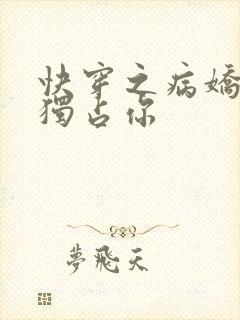 快穿之病嬌
獨占你
夢飛天